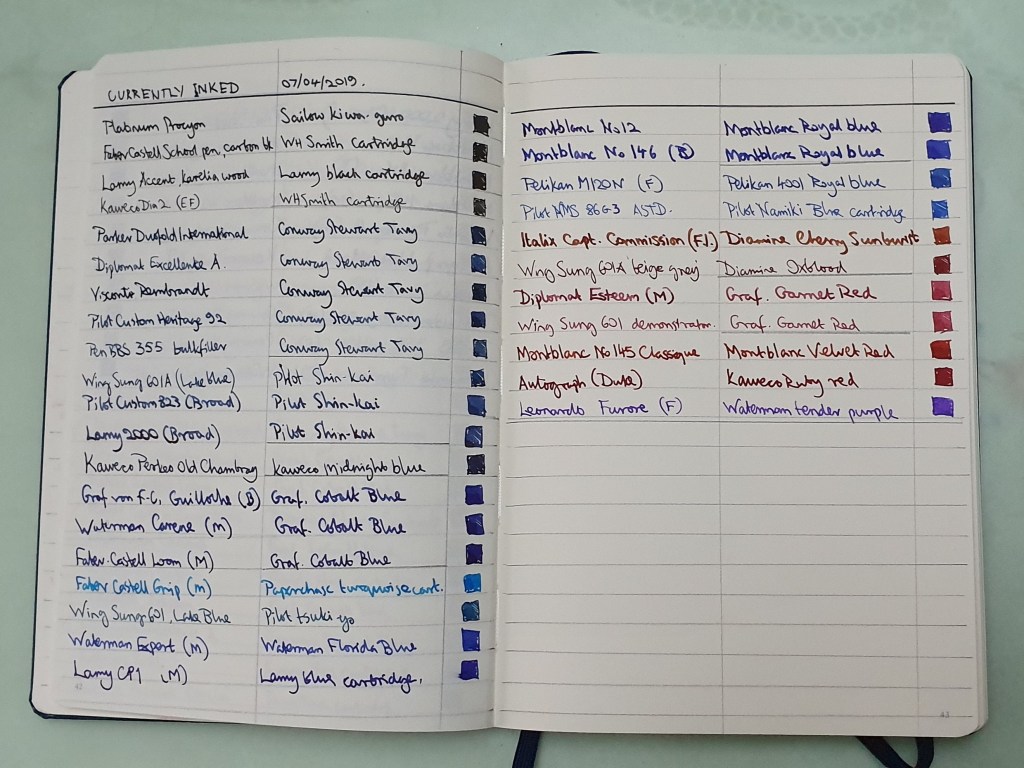 CURRENTLY INKED 07/04/2019.
Platinum Procyon Sailor Kiwa-guro
Faber Castell School pen, carbon bk WH Smith cartridge
Lamy Accent, karelia wood Lamy black cartridge
Kaweco Dia2 (EF) WHSmith cartridge
Parker Duofold International Conway Stewart Tavy
Diplomat Excellence A. Conway Stewart Tavy
Visconti Rembrandt Conway Stewart Tavy
Pilot Custom Heritage 92 Conway Stewart Tavy
PenBBS 355 bulkfiller Conway Stewart Tavy
Wing Sung 601A (Lake blue) Pilot Shin-kai
Pilot Custom 823 (Broad) Pilot Shin-kai
Lamy 2000 (Broad) Pilot Shin-kai
Kaweco Perkeo Old Chambray Kaweco Midnight blue
Graf von F-C, Guilloche (B) Graf. Cobalt Blue
Waterman Carene (M) Graf. Cobalt Blue
Faber-Castell Loom (M) Graf. Cobalt Blue
Faber Castell Grip (m) Paperchase turquoise cart.
Wing Sung 601, Lake Blue Pilot tsuki-yo
Waterman Expert (M) Waterman Florida Blue
Lamy CP1 (M) Lamy blue cartridge.
42
Montblanc No12 Montblanc Royal blue
Montblanc No 146 (B) Montblanc Royal blue
Pelikan M120N (F) Pelikan 4001 Royal blue
Pilot 86G3 ASTD. Pilot Namiki Blue cartridge
Italix Capt. Commission (F.I.) Diamine Cherry Sunburst
Wing Sung 601A 'beige grey' Diamine Oxblood
Diplomat Esteem (M) Graf. Garnet Red
Wing Sung 601 demonstrator. Graf. Garnet Red
Montblanc No 145 Classique Montblanc Velvet Red
Autograph (Duke) Kaweco Ruby red
Leonardo Furore (F) Waterman tender purple
43